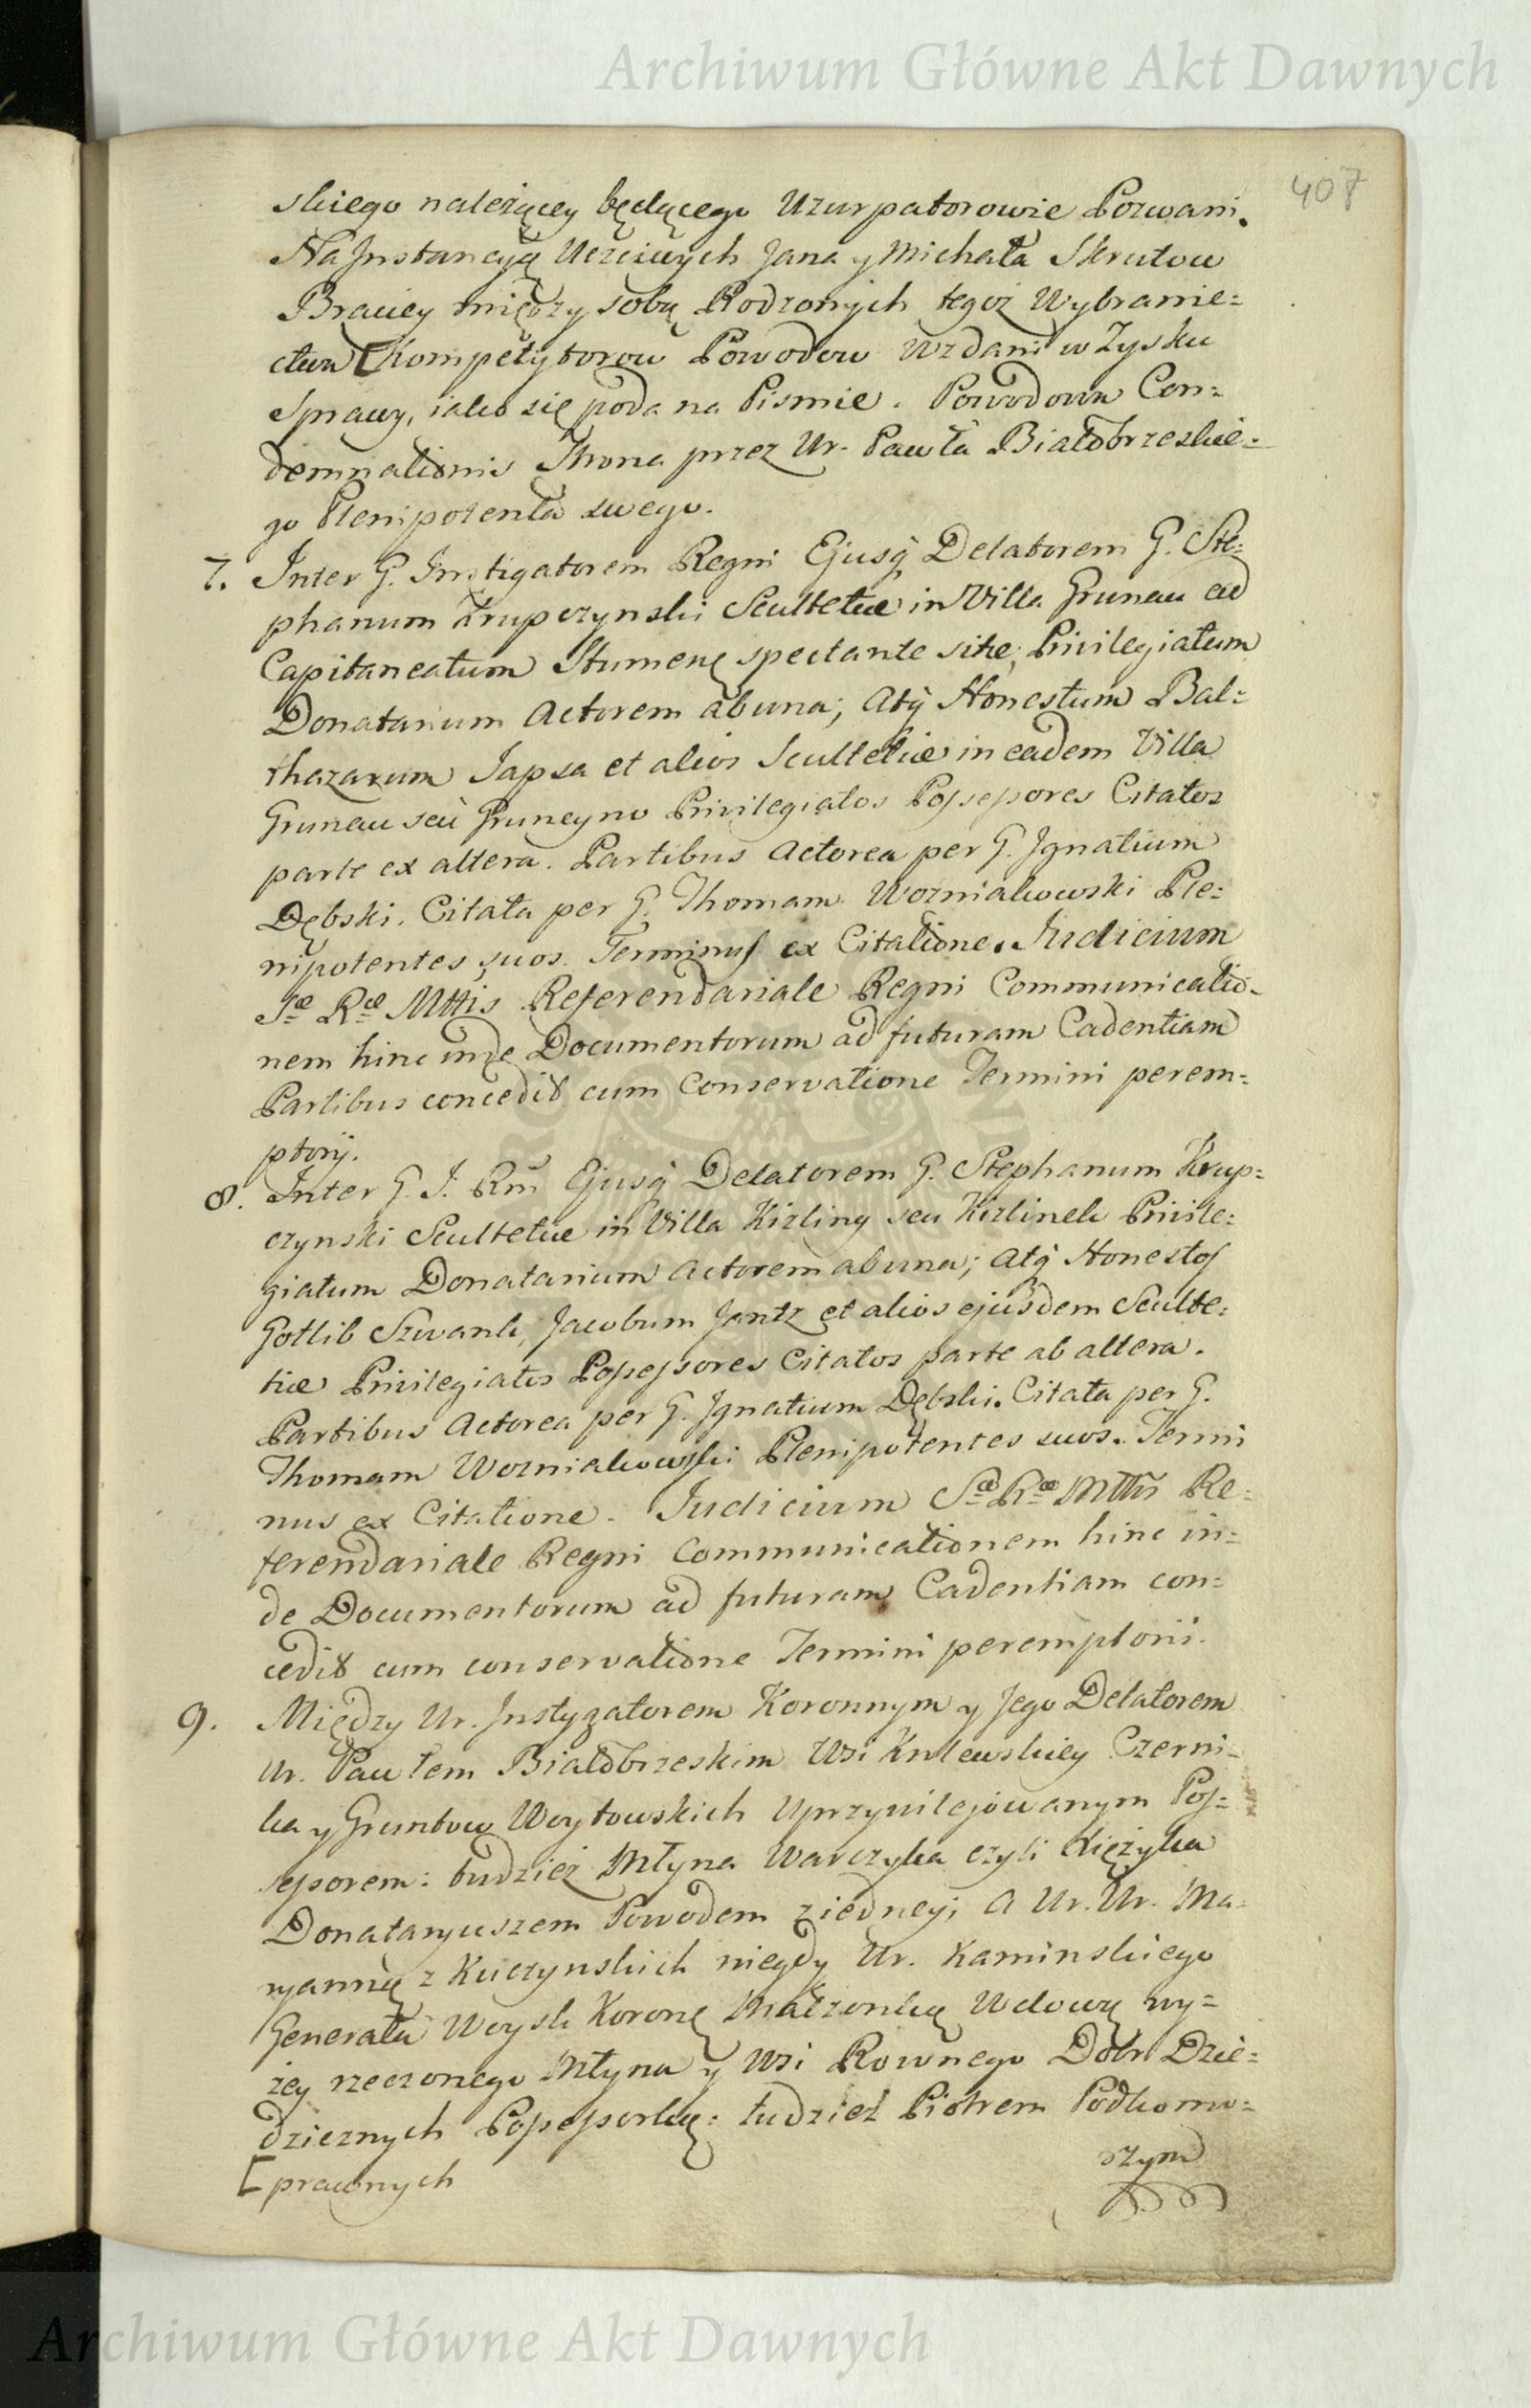 Archiwum Główne Akt Dawnych
407
skiego należącey będącego Uzurpatorowie Pozwani.
Na Instancyą Uczciwych Jana y Michała Skrutow
Braciey między sobą Rodzonych tegoż Wybranie=
ctwa [Kompetytorow Powodow wzdani w Zysku
Sprawy, iako się poda na Pismie. Powodowa Con=
demnationis Strona przez Ur. Pawła Białobrzeskie=
go Plenipotenta swego.
7. Inter G. Instigatorem Regni Ejusq̃ Delatorem G. Ste=
phanum Krupczynski Scultetiæ in Villa Grunau ad
Capitaneatum Stumenę spectante sitæ, Privilegiatum
Donatarium Actorem ab una; Atq̃ Honestum Bal=
thazarum Japsa et alios Scultetiæ in eadem Villa
Grunau seù Gruneyno Privilegiatos Possessores Citatos
parte ex altera. Partibus Actorea per G. Ignatium
Dębski. Citata per G. Thomam Wozniakowski Ple=
nipotentes suos. Terminus ex Citatione. Iudicium
Sæ Ræ Mttis Referendariale Regni Communicatio=
nem hinc inde Documentorum ad futuram Cadentiam
Partibus concedit cum Conservatione Termini perem=
ptorij.
8. Inter G. I. Rm̃ Ejusq̃ Delatorem G. Stephanum Krup=
czynski Scultetiæ in Villa Kizling seu Kizlinek Privile=
giatum Donatarium Actorem ab una; Atq̃ Honestos
Gotlib Szwank, Jacobum Jantz et alios ejusdem Sculte=
tiæ Privilegiatos Possessores Citatos parte ab altera.
Partibus Actorea per G. Ignatium Dębski. Citata per G.
Thomam Wozniakowski Plenipotentes suos. Termi
nus ex Citatione. Iudicium Sæ Ræ Mttis Re=
ferendariale Regni Communicationem hinc in=
de Documentorum ad futuram Cadentiam con=
cedit cum conservatione Termini peremptorii.
9. Między Ur. Instygatorem Koronnym y Jego Delatorem
Ur. Pawłem Białobrzeskim Wsi Krulewskiey Czerni=
ka y Gruntow Woytowskich Uprzywilejowanym Pos=
sessorem: tudzież Młyna Warczyka czyli Xiężyka
Donataryuszem Powodem ziedney; A Ur. Ur. Ma=
ryanną z Kuczynskich niegdy Ur. Kaminskiego
Generała Woysk Koronę Małżonką Wdową wy=
żey rzeczonego Młyna y Wsi Rownego Dobr Dzie=
dzicznych Possessorką: tudzież Piotrem Podkomo=
szym
[prawnych
Archiwum Główne Akt Dawnych